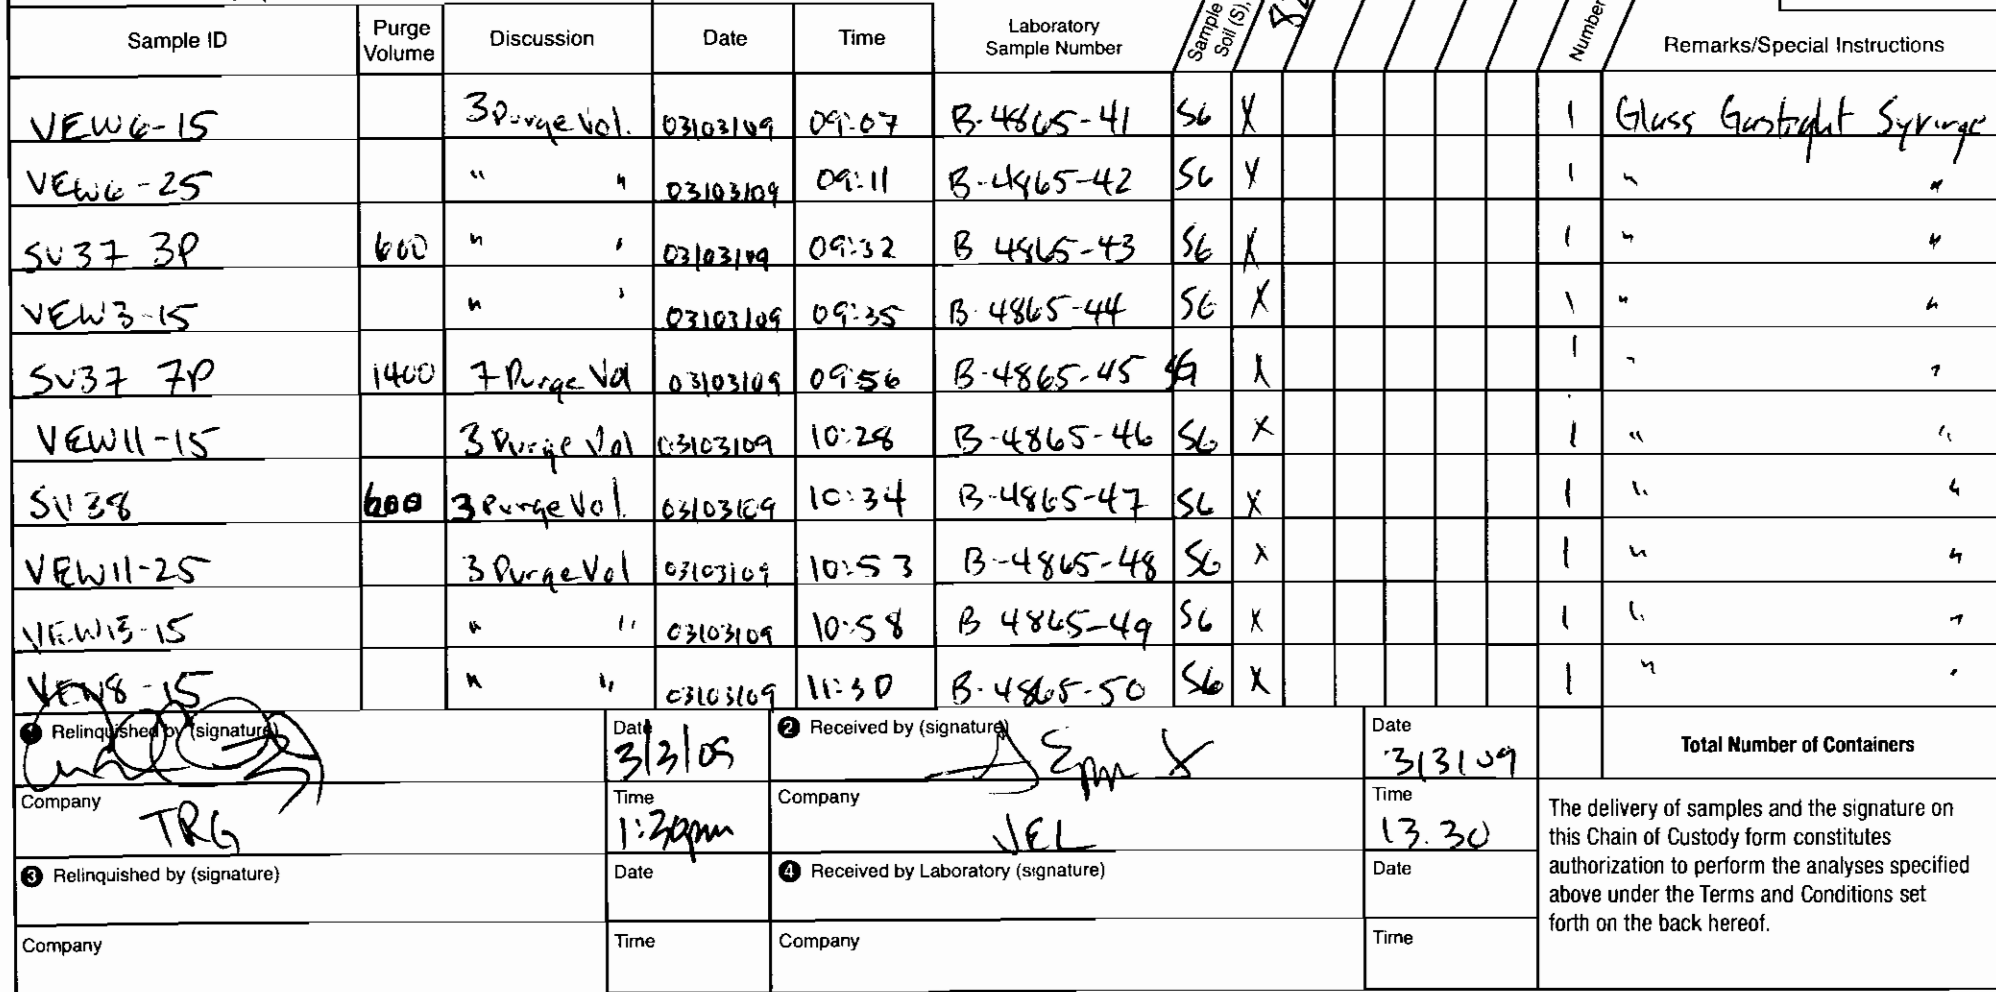 Sample ID Purge Volume Discussion Date Time Laboratory Sample Number Sample Soil (S), Number Remarks/Special Instructions
VEW6-15 3 Purge Vol. 03/03/09 09:07 B-4865-41 SG X 1 Glass Gastight Syringe
VEW6-25 " " 03/03/09 09:11 B-4865-42 SG X 1 " "
SV37 3P 600 " " 03/03/09 09:32 B 4865-43 SG X 1 " "
VEW3-15 " " 03/03/09 09:35 B-4865-44 SG X 1 " "
SV37 7P 1400 7 Purge Vol 03/03/09 09:56 B-4865-45 SG X 1 " "
VEW11-15 3 Purge Vol 03/03/09 10:28 B-4865-46 SG X 1 " "
SV38 600 3 Purge Vol. 03/03/09 10:34 B-4865-47 SG X 1 " "
VEW11-25 3 Purge Vol 03/03/09 10:53 B-4865-48 SG X 1 " "
VEW13-15 " " 03/03/09 10:58 B 4865-49 SG X 1 " "
VEW8-15 " " 03/03/09 11:30 B-4865-50 SG X 1 " "
1 Relinquished by (signature) Date 3/3/09 2 Received by (signature) Date 3/3/09 Total Number of Containers
Company TRG Time 1:30pm Company JEL Time 13.30
3 Relinquished by (signature) Date 4 Received by Laboratory (signature) Date
Company Time Company Time
The delivery of samples and the signature on
this Chain of Custody form constitutes
authorization to perform the analyses specified
above under the Terms and Conditions set
forth on the back hereof.